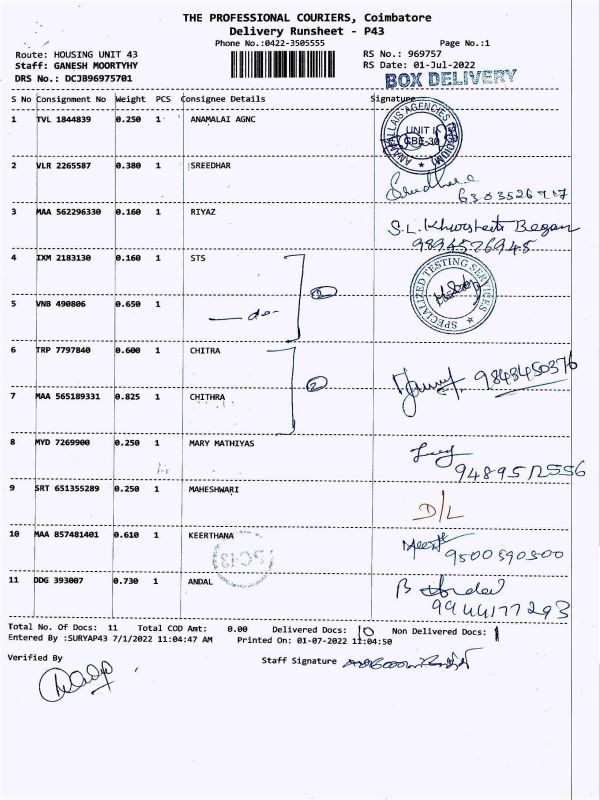 THE PROFESSIONAL COURIERS, Coimbatore
Delivery Runsheet - P43
Phone No.:0422-3505555
Page No.:1
Route: HOUSING UNIT 43
RS No.: 969757
Staff: GANESH MOORTYHY
RS Date: 01-Jul-2022
DRS No.: DCJB96975701
BOX DELIVERY
S No Consignment No Weight PCS Consignee Details Signature
1 TVL 1844839 0.250 1 ANAMALAI AGNC
UNIT II
CBE-30
2 VLR 2265587 0.380 1 SREEDHAR
3 MAA 562296330 0.160 1 RIYAZ
S.L. Khursheeth Began
9894576945
4 IXM 2183130 0.160 1 STS
SPECIALIZED TESTING SERVICES
1
5 VNB 490806 0.650 1
— do -
6 TRP 7797840 0.600 1 CHITRA
2
9843450376
7 MAA 565189331 0.825 1 CHITHRA
8 MYD 7269900 0.250 1 MARY MATHIYAS
9489512556
9 SRT 651355289 0.250 1 MAHESHWARI
D/L
10 MAA 857481401 0.610 1 KEERTHANA
9500590500
11 DDG 393007 0.730 1 ANDAL
B Andal
9944177293
Total No. Of Docs: 11 Total COD Amt: 0.00 Delivered Docs: 10 Non Delivered Docs: 1
Entered By :SURYAP43 7/1/2022 11:04:47 AM Printed On: 01-07-2022 11:04:50
Verified By
Staff Signature